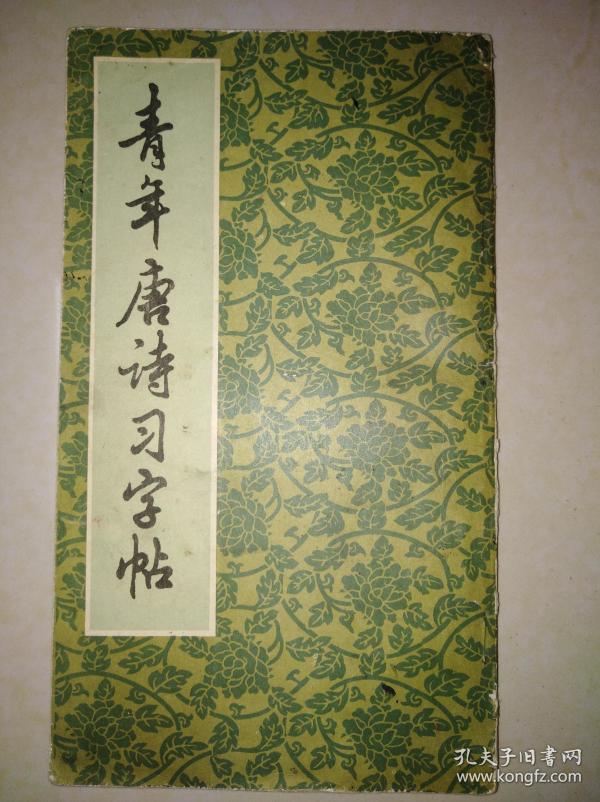 青年唐诗习字帖
孔夫子旧書网
www.kongfz.com